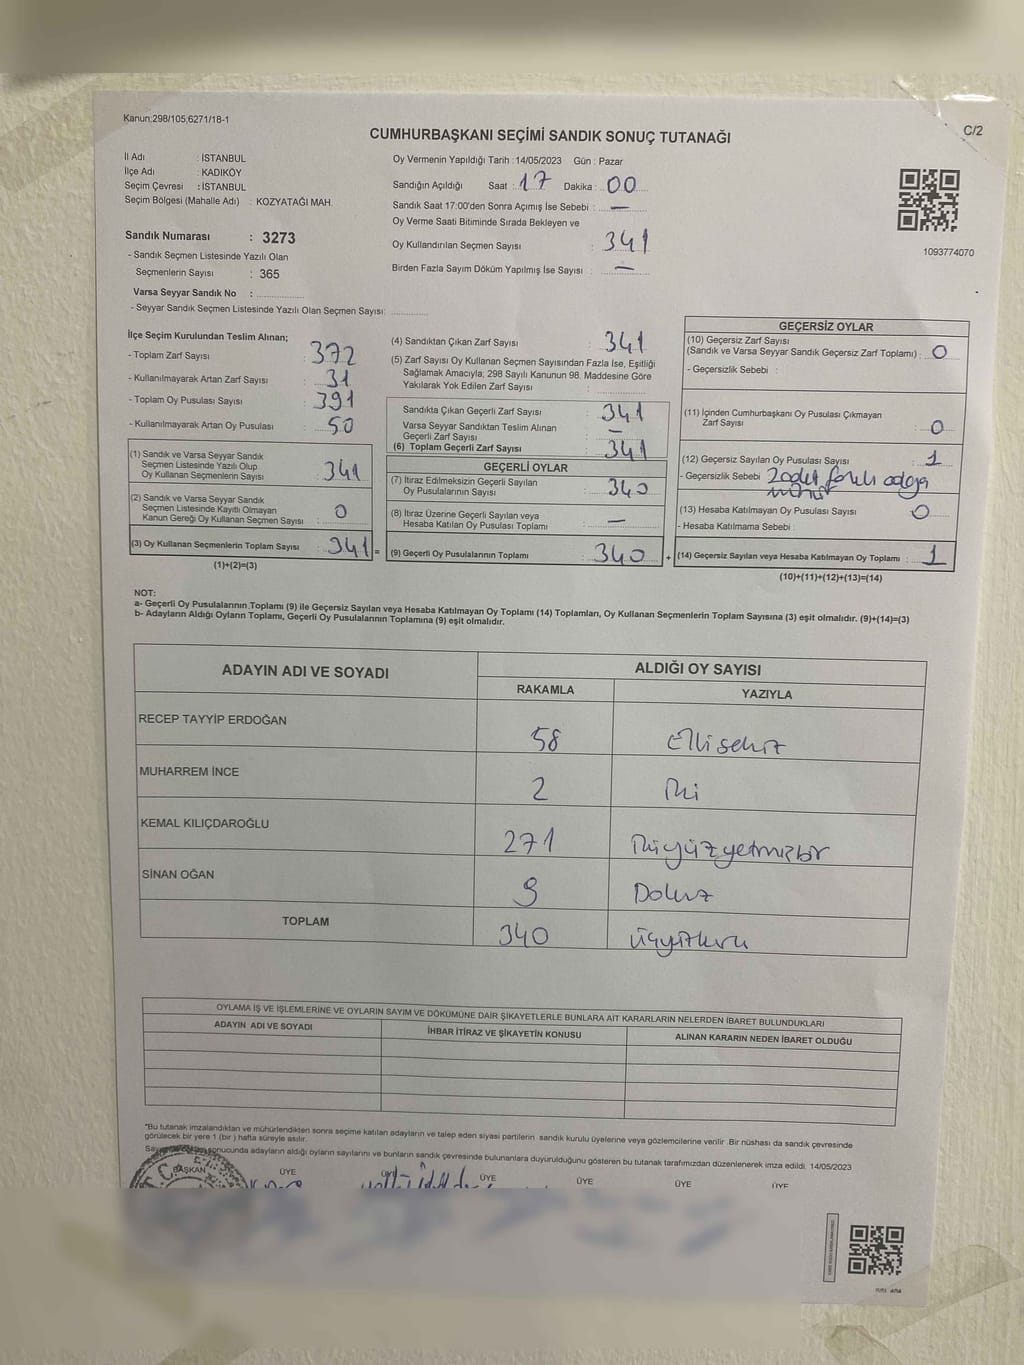 Kanun;298/105,6271/18-1
C/2
CUMHURBAŞKANI SEÇİMİ SANDIK SONUÇ TUTANAĞI
İl Adı : İSTANBUL
İlçe Adı : KADIKÖY
Seçim Çevresi : İSTANBUL
Seçim Bölgesi (Mahalle Adı) : KOZYATAĞI MAH.
Sandık Numarası : 3273
- Sandık Seçmen Listesinde Yazılı Olan
Seçmenlerin Sayısı : 365
Varsa Seyyar Sandık No :
- Seyyar Sandık Seçmen Listesinde Yazılı Olan Seçmen Sayısı:
Oy Vermenin Yapıldığı Tarih :14/05/2023 Gün : Pazar
Sandığın Açıldığı Saat : 17 Dakika : 00
Sandık Saat 17:00'den Sonra Açımış İse Sebebi : —
Oy Verme Saati Bitiminde Sırada Bekleyen ve
Oy Kullandırılan Seçmen Sayısı : 341
Birden Fazla Sayım Döküm Yapılmış İse Sayısı : —
1093774070
İlçe Seçim Kurulundan Teslim Alınan;
- Toplam Zarf Sayısı : 372
- Kullanılmayarak Artan Zarf Sayısı : 31
- Toplam Oy Pusulası Sayısı : 391
- Kullanılmayarak Artan Oy Pusulası : 50
(1) Sandık ve Varsa Seyyar Sandık
Seçmen Listesinde Yazılı Olup
Oy Kullanan Seçmenlerin Sayısı : 341
(2) Sandık ve Varsa Seyyar Sandık
Seçmen Listesinde Kayıtlı Olmayan
Kanun Gereği Oy Kullanan Seçmen Sayısı : 0
(3) Oy Kullanan Seçmenlerin Toplam Sayısı : 341 =
(1)+(2)=(3)
(4) Sandıktan Çıkan Zarf Sayısı : 341
(5) Zarf Sayısı Oy Kullanan Seçmen Sayısından Fazla İse, Eşitliği
Sağlamak Amacıyla; 298 Sayılı Kanunun 98. Maddesine Göre
Yakılarak Yok Edilen Zarf Sayısı :
Sandıkta Çıkan Geçerli Zarf Sayısı : 341
Varsa Seyyar Sandıktan Teslim Alınan
Geçerli Zarf Sayısı : —
(6) Toplam Geçerli Zarf Sayısı : 341
GEÇERLİ OYLAR
(7) İtiraz Edilmeksizin Geçerli Sayılan
Oy Pusulalarının Sayısı : 340
(8) İtiraz Üzerine Geçerli Sayılan veya
Hesaba Katılan Oy Pusulası Toplamı : —
(9) Geçerli Oy Pusulalarının Toplamı : 340 +
GEÇERSİZ OYLAR
(10) Geçersiz Zarf Sayısı
(Sandık ve Varsa Seyyar Sandık Geçersiz Zarf Toplamı) : 0
- Geçersizlik Sebebi :
(11) İçinden Cumhurbaşkanı Oy Pusulası Çıkmayan
Zarf Sayısı : 0
(12) Geçersiz Sayılan Oy Pusulası Sayısı : 1
- Geçersizlik Sebebi 2 adet farklı adaya
mühür
(13) Hesaba Katılmayan Oy Pusulası Sayısı : 0
- Hesaba Katılmama Sebebi :
(14) Geçersiz Sayılan veya Hesaba Katılmayan Oy Toplamı : 1
(10)+(11)+(12)+(13)=(14)
NOT:
a- Geçerli Oy Pusulalarının Toplamı (9) ile Geçersiz Sayılan veya Hesaba Katılmayan Oy Toplamı (14) Toplamları, Oy Kullanan Seçmenlerin Toplam Sayısına (3) eşit olmalıdır. (9)+(14)=(3)
b- Adayların Aldığı Oyların Toplamı, Geçerli Oy Pusulalarının Toplamına (9) eşit olmalıdır.
ADAYIN ADI VE SOYADI ALDIĞI OY SAYISI
RAKAMLA YAZIYLA
RECEP TAYYİP ERDOĞAN 58 Ellisekiz
MUHARREM İNCE 2 İki
KEMAL KILIÇDAROĞLU 271 İkiyüzyetmişbir
SİNAN OĞAN 9 Dokuz
TOPLAM 340 Üçyüzkırk
OYLAMA İŞ VE İŞLEMLERİNE VE OYLARIN SAYIM VE DÖKÜMÜNE DAİR ŞİKAYETLERLE BUNLARA AİT KARARLARIN NELERDEN İBARET BULUNDUKLARI
ADAYIN ADI VE SOYADI İHBAR İTİRAZ VE ŞİKAYETİN KONUSU ALINAN KARARIN NEDEN İBARET OLDUĞU
*Bu tutanak imzalandıktan ve mühürlendikten sonra seçime katılan adayların ve talep eden siyasi partilerin sandık kurulu üyelerine veya gözlemcilerine verilir .Bir nüshası da sandık çevresinde
görülecek bir yere 1 (bir ) hafta süreyle asılır.
sonucunda adayların aldığı oyların sayılarını ve bunların sandık çevresinde bulunanlara duyurulduğunu gösteren bu tutanak tarafımızdan düzenlenerek imza edildi. 14/05/2023
BAŞKAN ÜYE ÜYE ÜYE ÜYE ÜYE